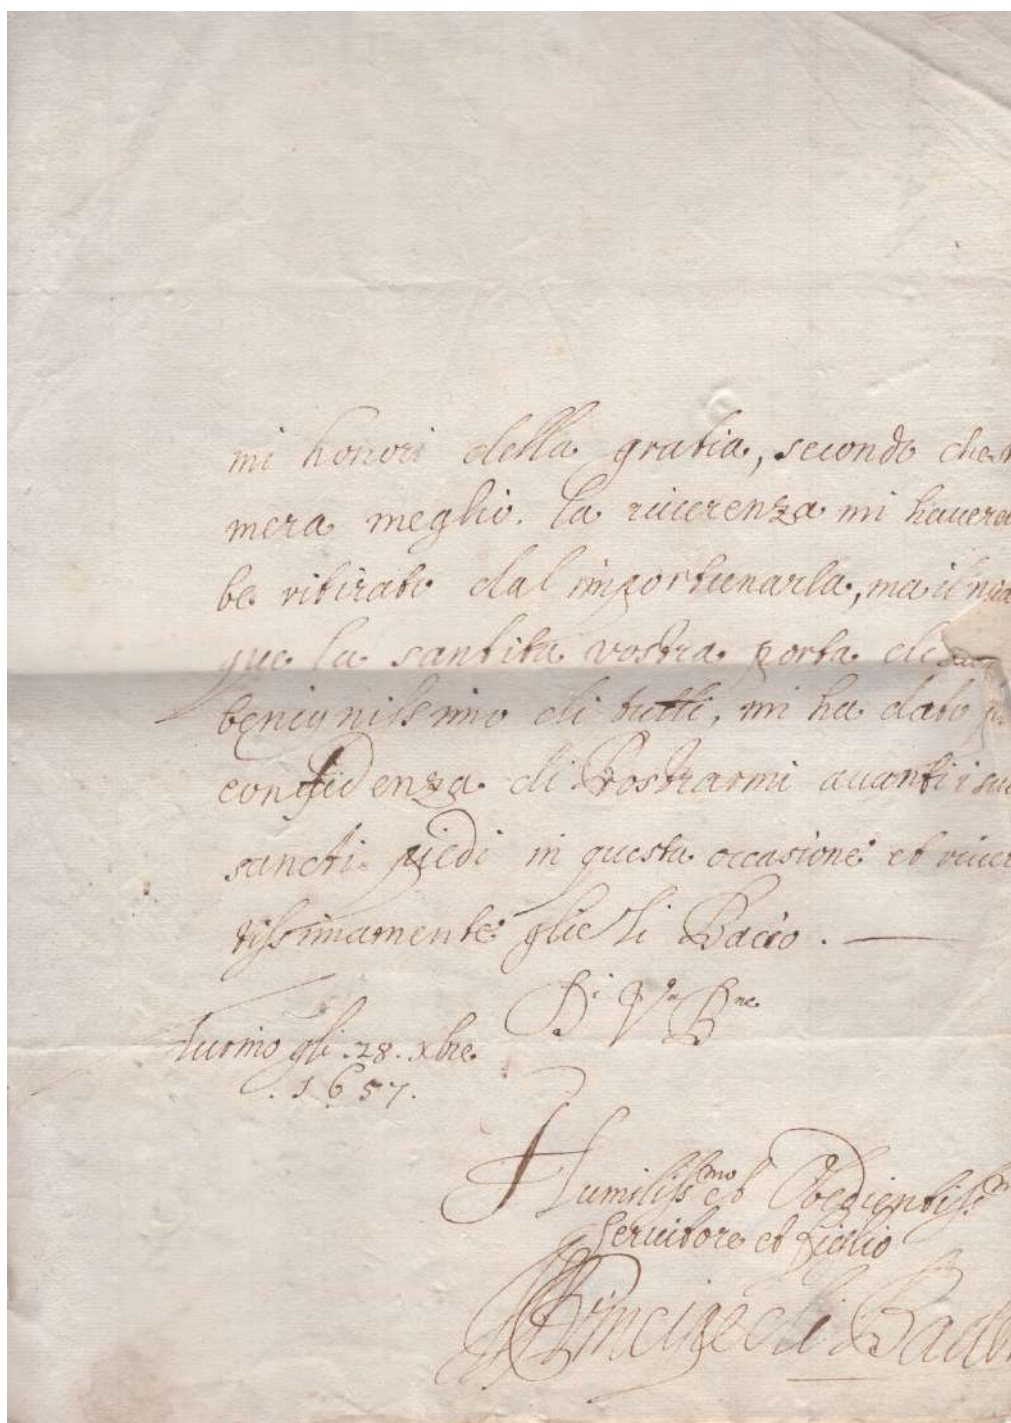 mi honori della gratia, secondo che
mera meglio. la riuerenza mi hauereb
be ritirato dal importunarla, ma il
que la santita vostra porta di
benignissimo di tutti, mi ha dato
confidenza di Prostrarmi auanti i suoi
sancti piedi in questa occasione et riueren
tissimamente glie li Bacio.
Di Vra Bne
turino gli .28. xbre.
.1657.
Humilissmo et Obedientissmo
seruitore et figlio
Principe di Baden